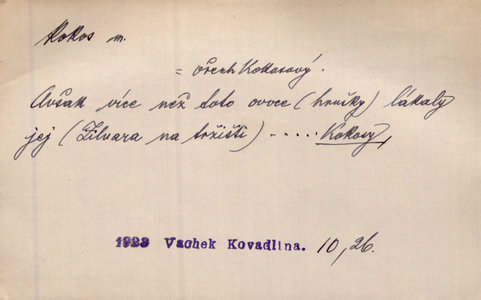 Kokos m.
= ořech Kokosový.
Avšak více než toto ovoce (hrušky) lákaly
jej (Žilvara na tržišti) ..... Kokosy,
1923 Vachek Kovadlina. 10,26.